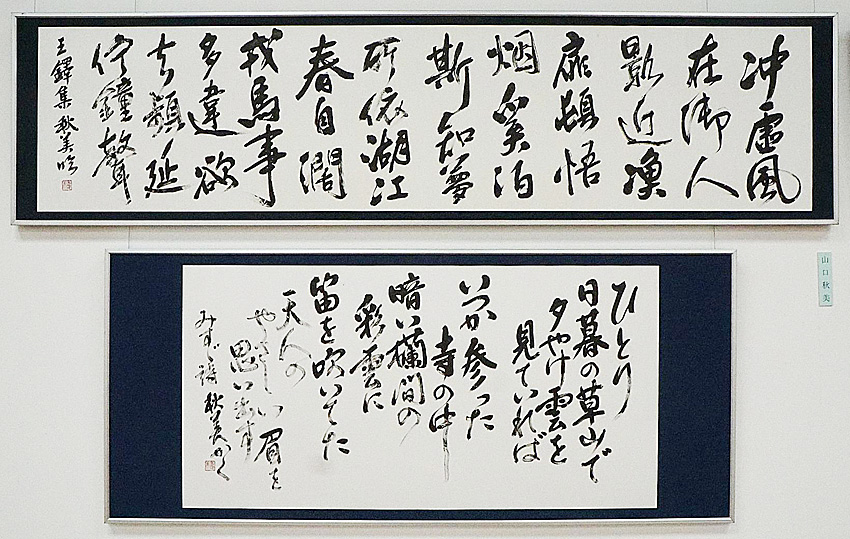 冲虚風
在御人
影近漁
扉頓悟
烟奚泊
斯知夢
所依湖江
春自濶
戎馬事
多違欲
去頻延
佇鐘聲
王鐸集 秋美臨
ひとり
日暮の草山で
夕やけ雲を
見ていれば
いつか参った
寺の中
暗い欄間の
彩雲に
笛を吹いてた
天人の
やさしい眉を
思い出す
みすゞ詩 秋美かく
山口秋美